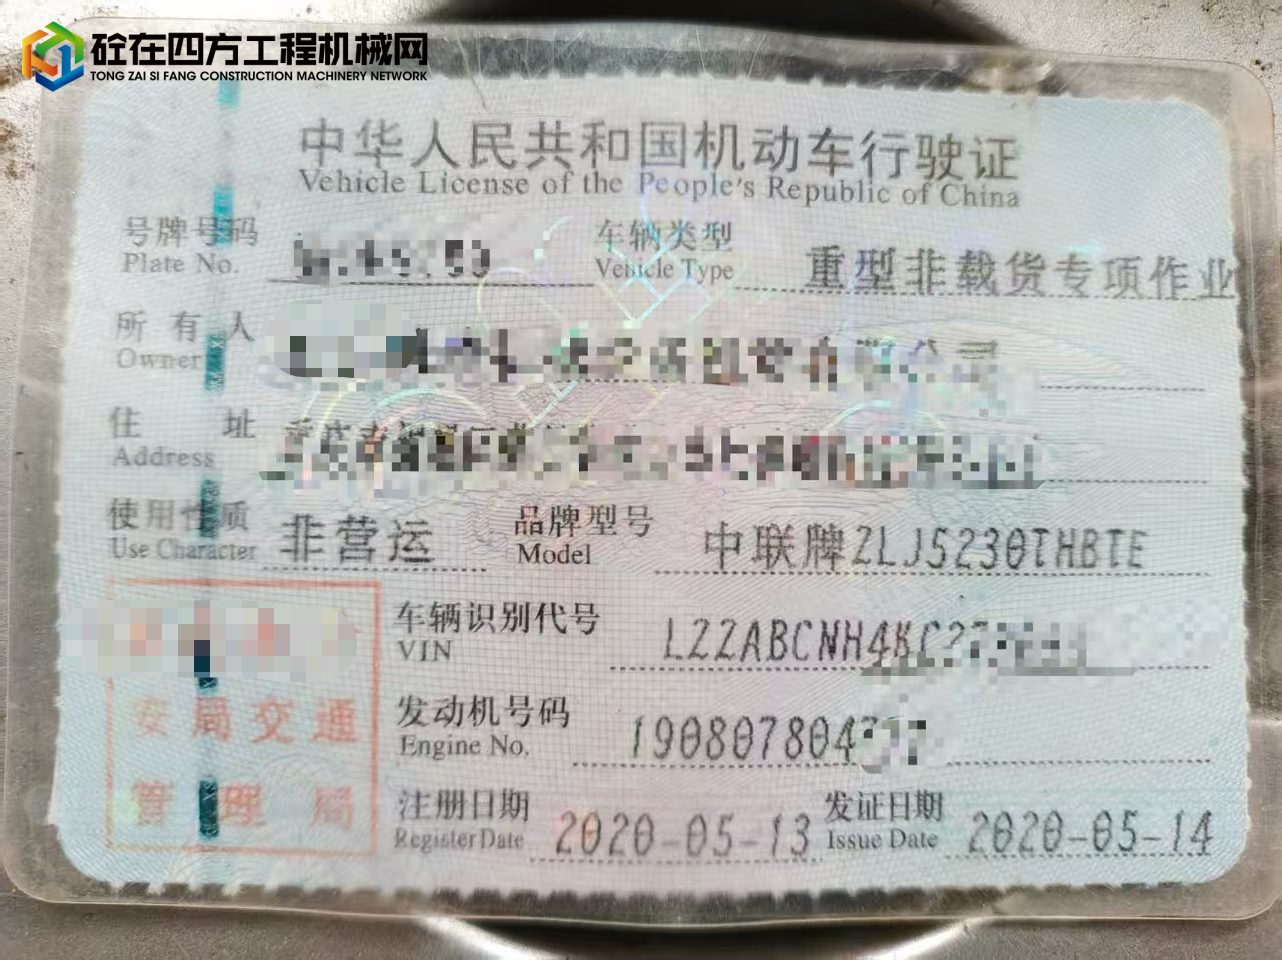 砼在四方工程机械网
TONG ZAI SI FANG CONSTRUCTION MACHINERY NETWORK
中华人民共和国机动车行驶证
Vehicle License of the People's Republic of China
号牌号码 车辆类型 重型非载货专项作业
Plate No. Vehicle Type
所有人
Owner
住址
Address
使用性质 非营运 品牌型号 中联牌ZLJ5230THBTE
Use Character Model
车辆识别代号 LZZABCNH4KC
VIN
安局交通
管理局
发动机号码 190807804
Engine No.
注册日期 2020-05-13 发证日期 2020-05-14
Register Date Issue Date